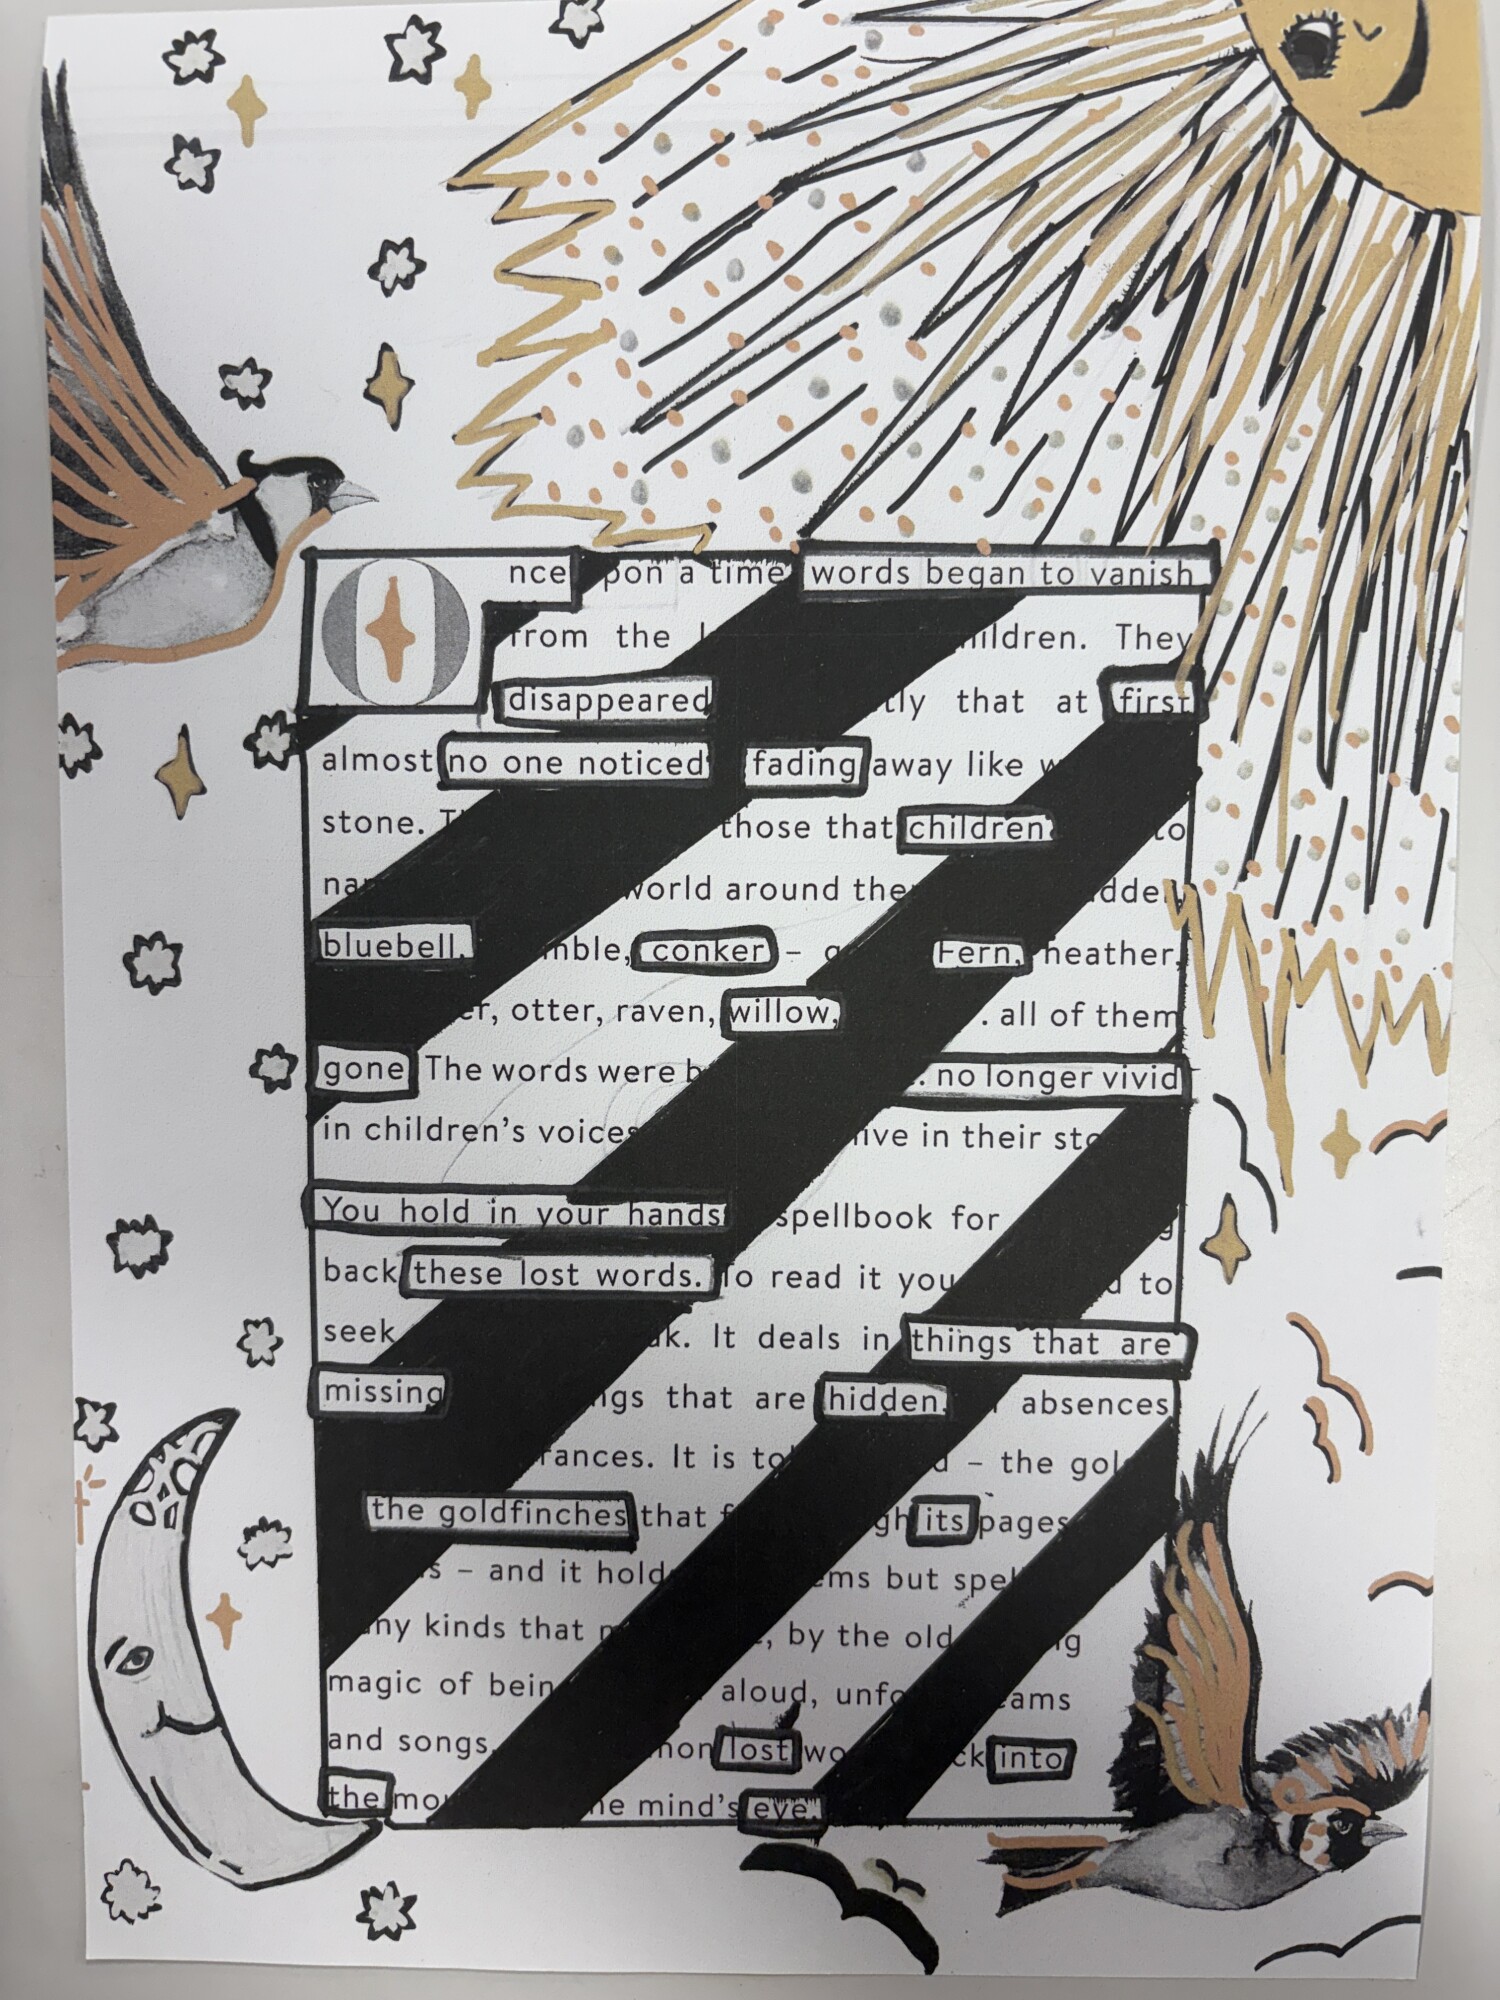 Once pon a time words began to vanish
from the ildren. They
disappeared tly that at first
almost no one noticed fading away like
stone. those that children to
world around the
bluebell. mble, conker – Fern, heather,
er, otter, raven, willow, . all of them
gone The words were b . no longer vivid
in children's voices ive in their sto
You hold in your hands spellbook for
back these lost words. To read it you to
seek ak. It deals in things that are
missing ngs that are hidden. absences
rances. It is to – the gol
the goldfinches that gh its pages
s – and it hold ems but spel
ny kinds that , by the old
magic of bein aloud, unfo eams
and songs, mon lost wo ck into
the mo he mind's eye.